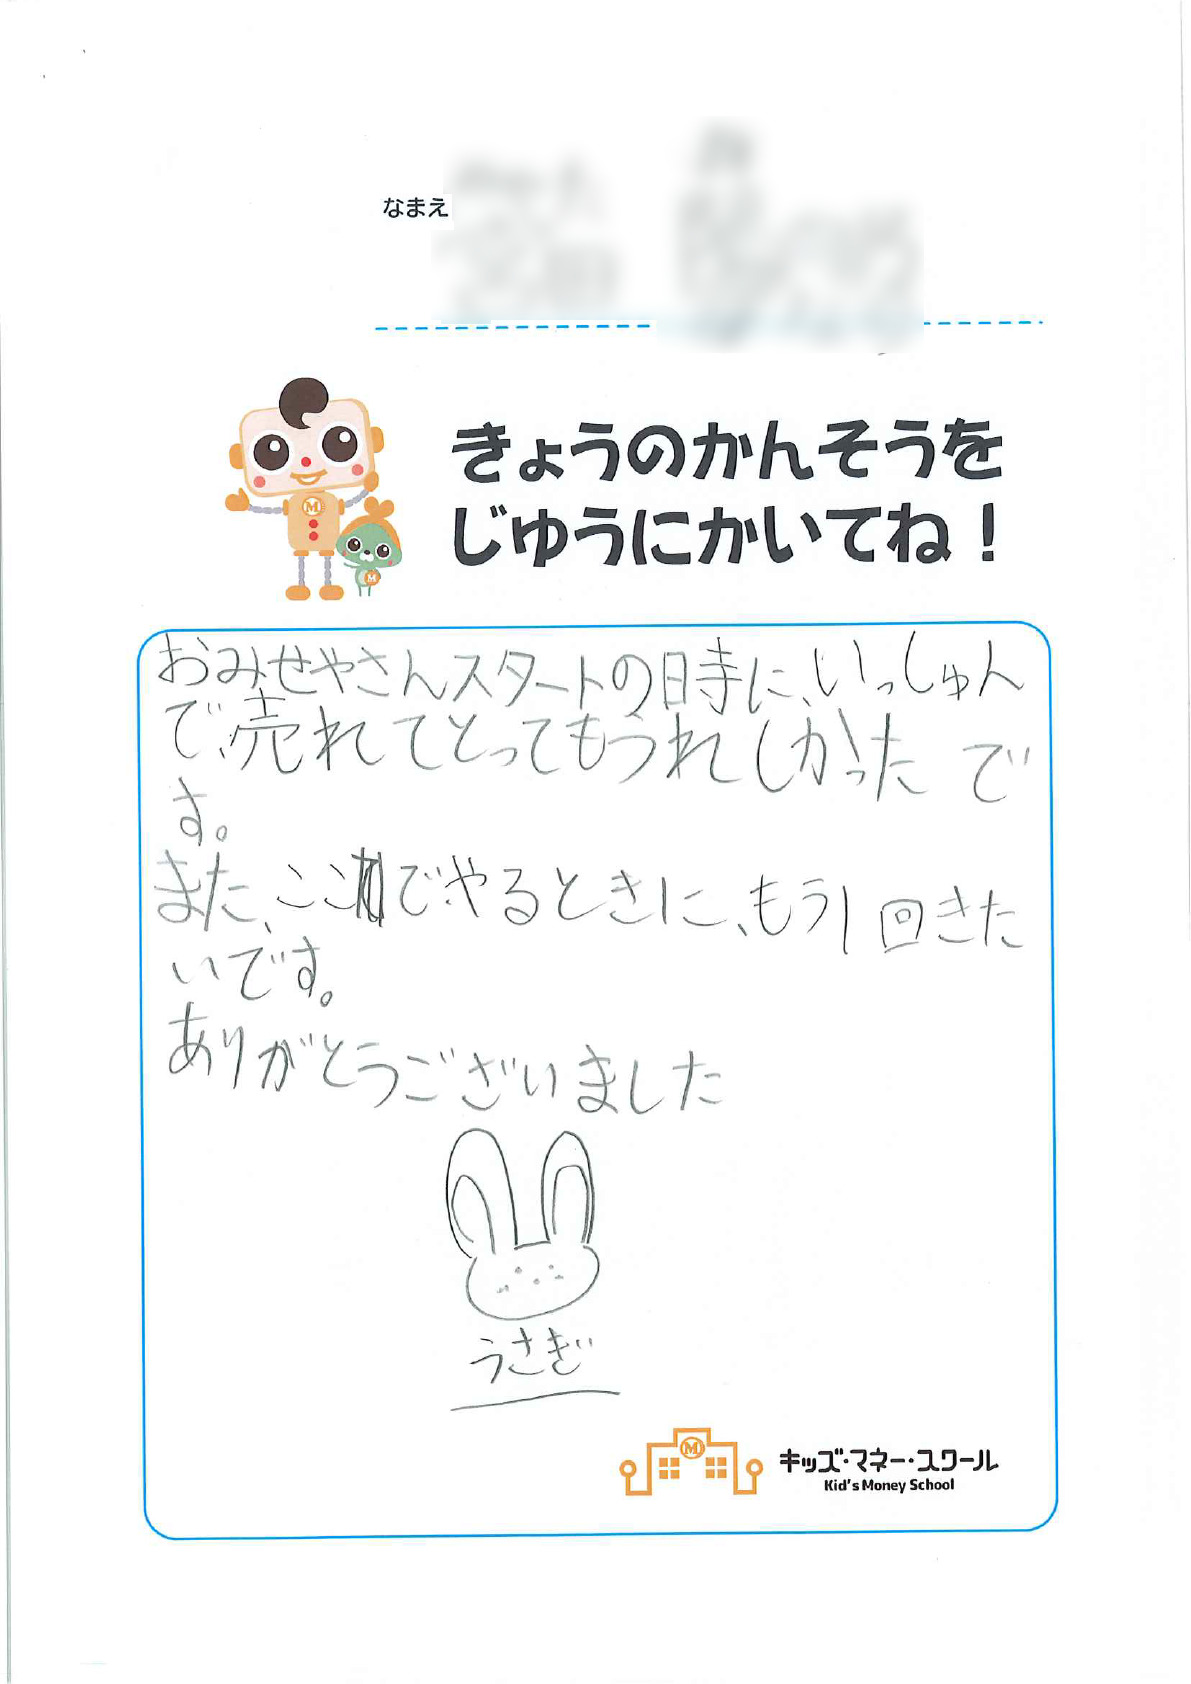 なまえ
きょうのかんそうを
じゆうにかいてね!
おみせやさんスタートの時に、いっしゅん
で、売れてとってもうれしかったで
す。
また、ここでやるときに、もう1回きた
いです。
ありがとうございました
うさぎ
M
キッズ・マネー・スクール
Kid's Money School